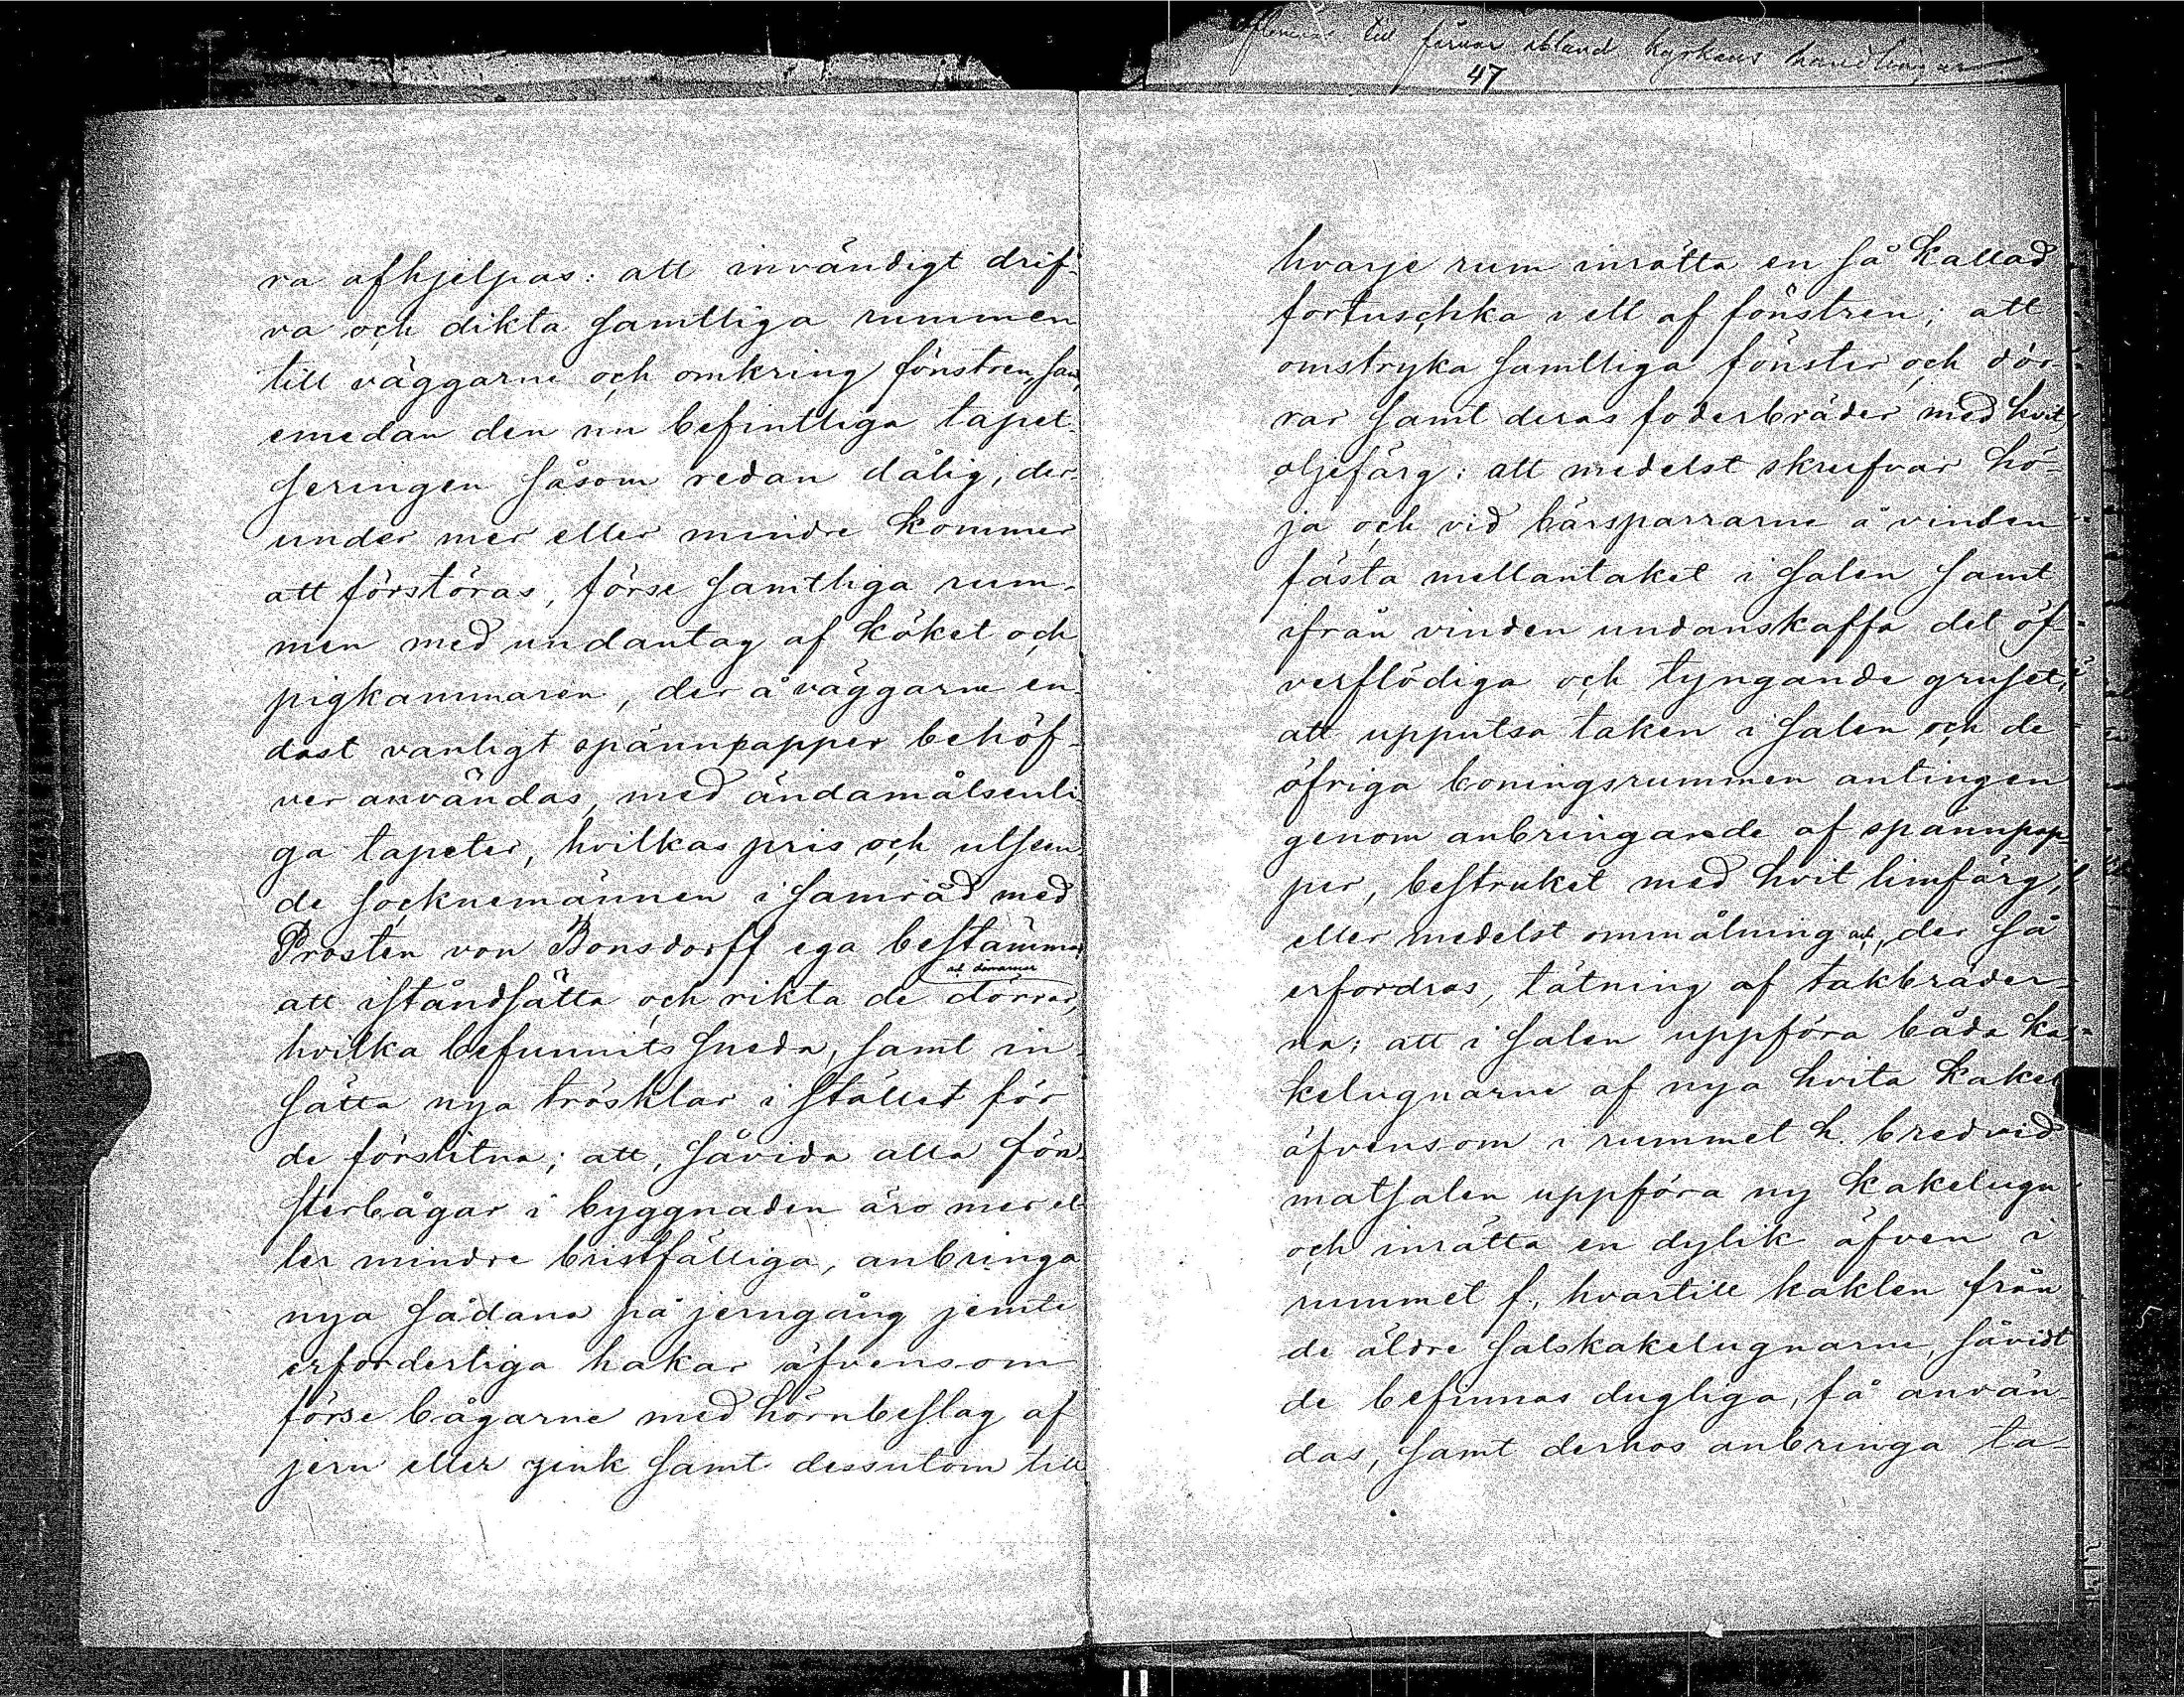 ra afhjelpas: att invändigt drif-
va och dikta samtliga rummen
till väggarne och omkring fönstren, samt,
emedan den nu befintliga tapet-
seringen såsom redan dålig, der-
under mer eller mindre kommer
att förstöras, förse samtliga rum-
men med undantag af köket och
pigkammaren, der å väggarne en-
dast vanligt spännpapper behöf-
ver användas, med ändamålsenli-
ga tapeter, hvilkas pris och utseen-
de socknemännen i samråd med
Prosten von Bonsdorff ega bestämma;
att iståndsätta och rikta de dörrar,
hvilka befunnits sneda, samt in-
sätta nya trösklar i stället för
de förslitna; att, såvida alla fön-
sterbågar i byggnaden äro mer el-
ler mindre bristfälliga, anbringa
nya sådana på jerngång jemte
erforderliga hakar äfvensom
förse bågarne med hörnbeslag af
jern eller zink samt dessutom till
till förvar ibland kyrkans handlingar
47
hvarje rum inrätta en så kallad
fortuschka i ett af fönstren; att
omstryka samtliga fönster och dör-
rar samt deras foderbräder med hvit
oljefärg: att medelst skrufvar hö-
ja och vid bärsparrarne å vinden
fästa mellantaket i salen samt
ifrån vinden undanskaffa det öf-
verflödiga och tyngande gruset;
att upputsa taken i salen och de
öfriga boningsrummen antingen
genom anbringande af spännpap-
per, bestruket med hvit limfärg,
eller medelst ommålning och, der så
erfordras, tätning af takbräder-
na; att i salen uppföra båda ka-
kelugnarne af nya hvita kakel
äfvensom i rummet h. bredvid
matsalen uppföra ny kakelugn
och inrätta en dylik äfven i
rummet f., hvartill kaklen från
de äldre salskakelugnarne, såvidt
de befinnas dugliga, få använ-
das, samt derhos anbringa ta-